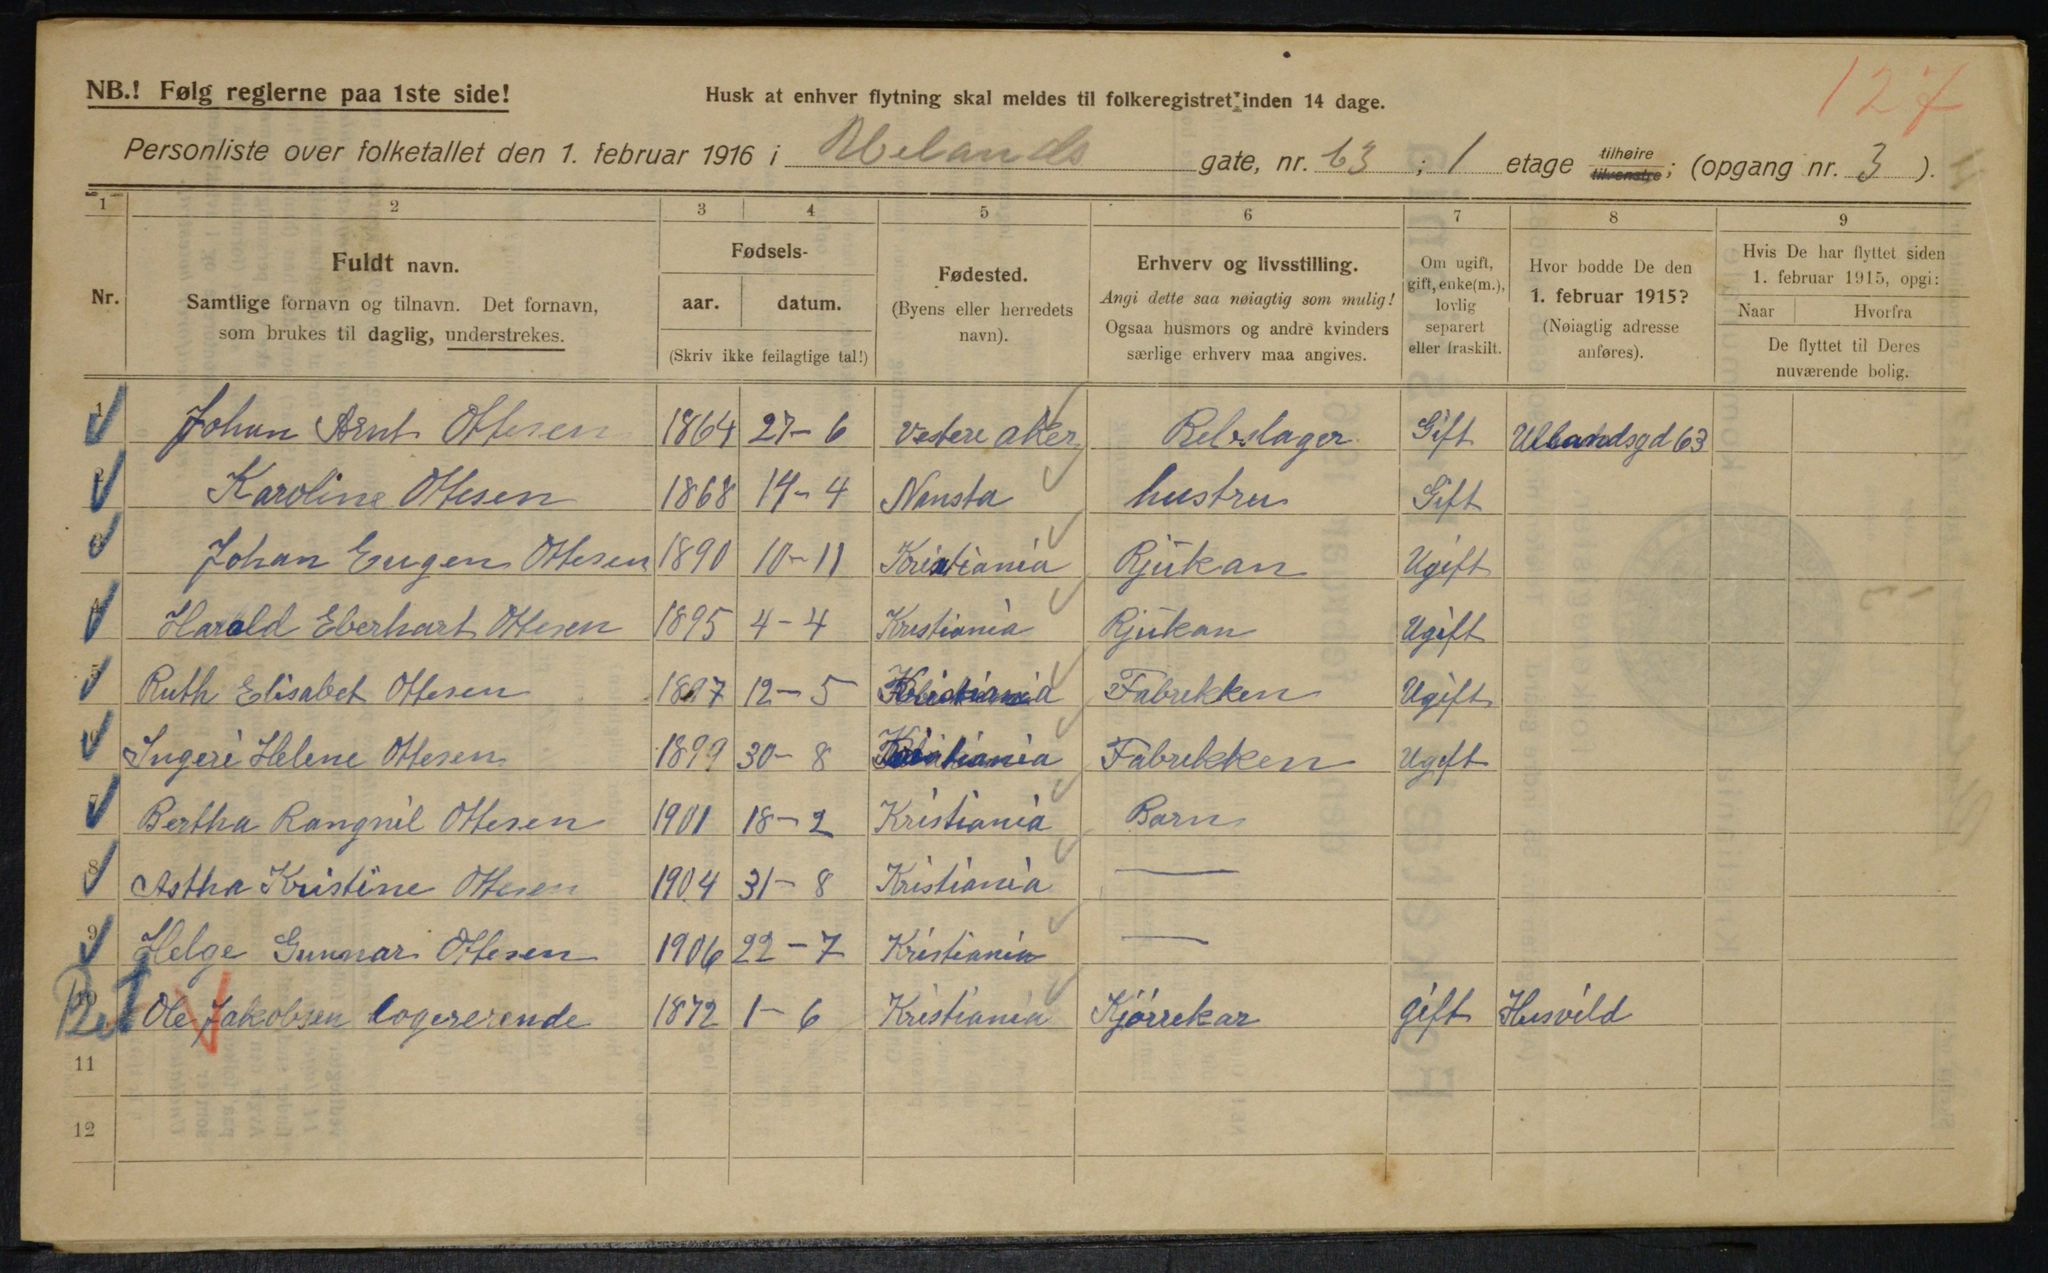 NB.! Følg reglerne paa 1ste side!
Husk at enhver flytning skal meldes til folkeregistret inden 14 dage.
127
Personliste over folketallet den 1. februar 1916 i Uelands gate, nr. 63; 1 etage tilhøire tilvenstre; (opgang nr. 3).
1 2 3 4 5 6 7 8 9
Nr.
Fuldt navn.
Samtlige fornavn og tilnavn. Det fornavn,
som brukes til daglig, understrekes.
Fødsels-
aar. datum.
(Skriv ikke feilagtige tal!)
Fødested.
(Byens eller herredets
navn).
Erhverv og livsstilling.
Angi dette saa nøiagtig som mulig!
Ogsaa husmors og andre kvinders
særlige erhverv maa angives.
Om ugift,
gift, enke(m.),
lovlig
separert
eller fraskilt.
Hvor bodde De den
1. februar 1915?
(Nøiagtig adresse
anføres).
Hvis De har flyttet siden
1. februar 1915, opgi:
Naar Hvorfra
De flyttet til Deres
nuværende bolig.
1 Johan Arnt Ottesen 1864 27-6 Vestre aker Rebslager Gift Uelandsgd 63
2 Karoline Ottesen 1868 14-4 Nansta hustru Gift
3 Johan Eugen Ottesen 1890 10-11 Kristiania Rjukan Ugift
4 Harald Eberhart Ottesen 1895 4-4 Kristiania Rjukan Ugift
5 Ruth Elisabet Ottesen 1897 12-5 Kristiania Fabrikken Ugift
6 Ingeri Helene Ottesen 1899 30-8 Kristiania Fabrikken Ugift
7 Bertha Rangnil Ottesen 1901 18-2 Kristiania Barn
8 Astha Kristine Ottesen 1904 31-8 Kristiania —
9 Helge Gunnar Ottesen 1906 22-7 Kristiania —
10 Ole Jakobsen logererende 1872 1-6 Kristiania Kjørrekar gift Husvild
11
12